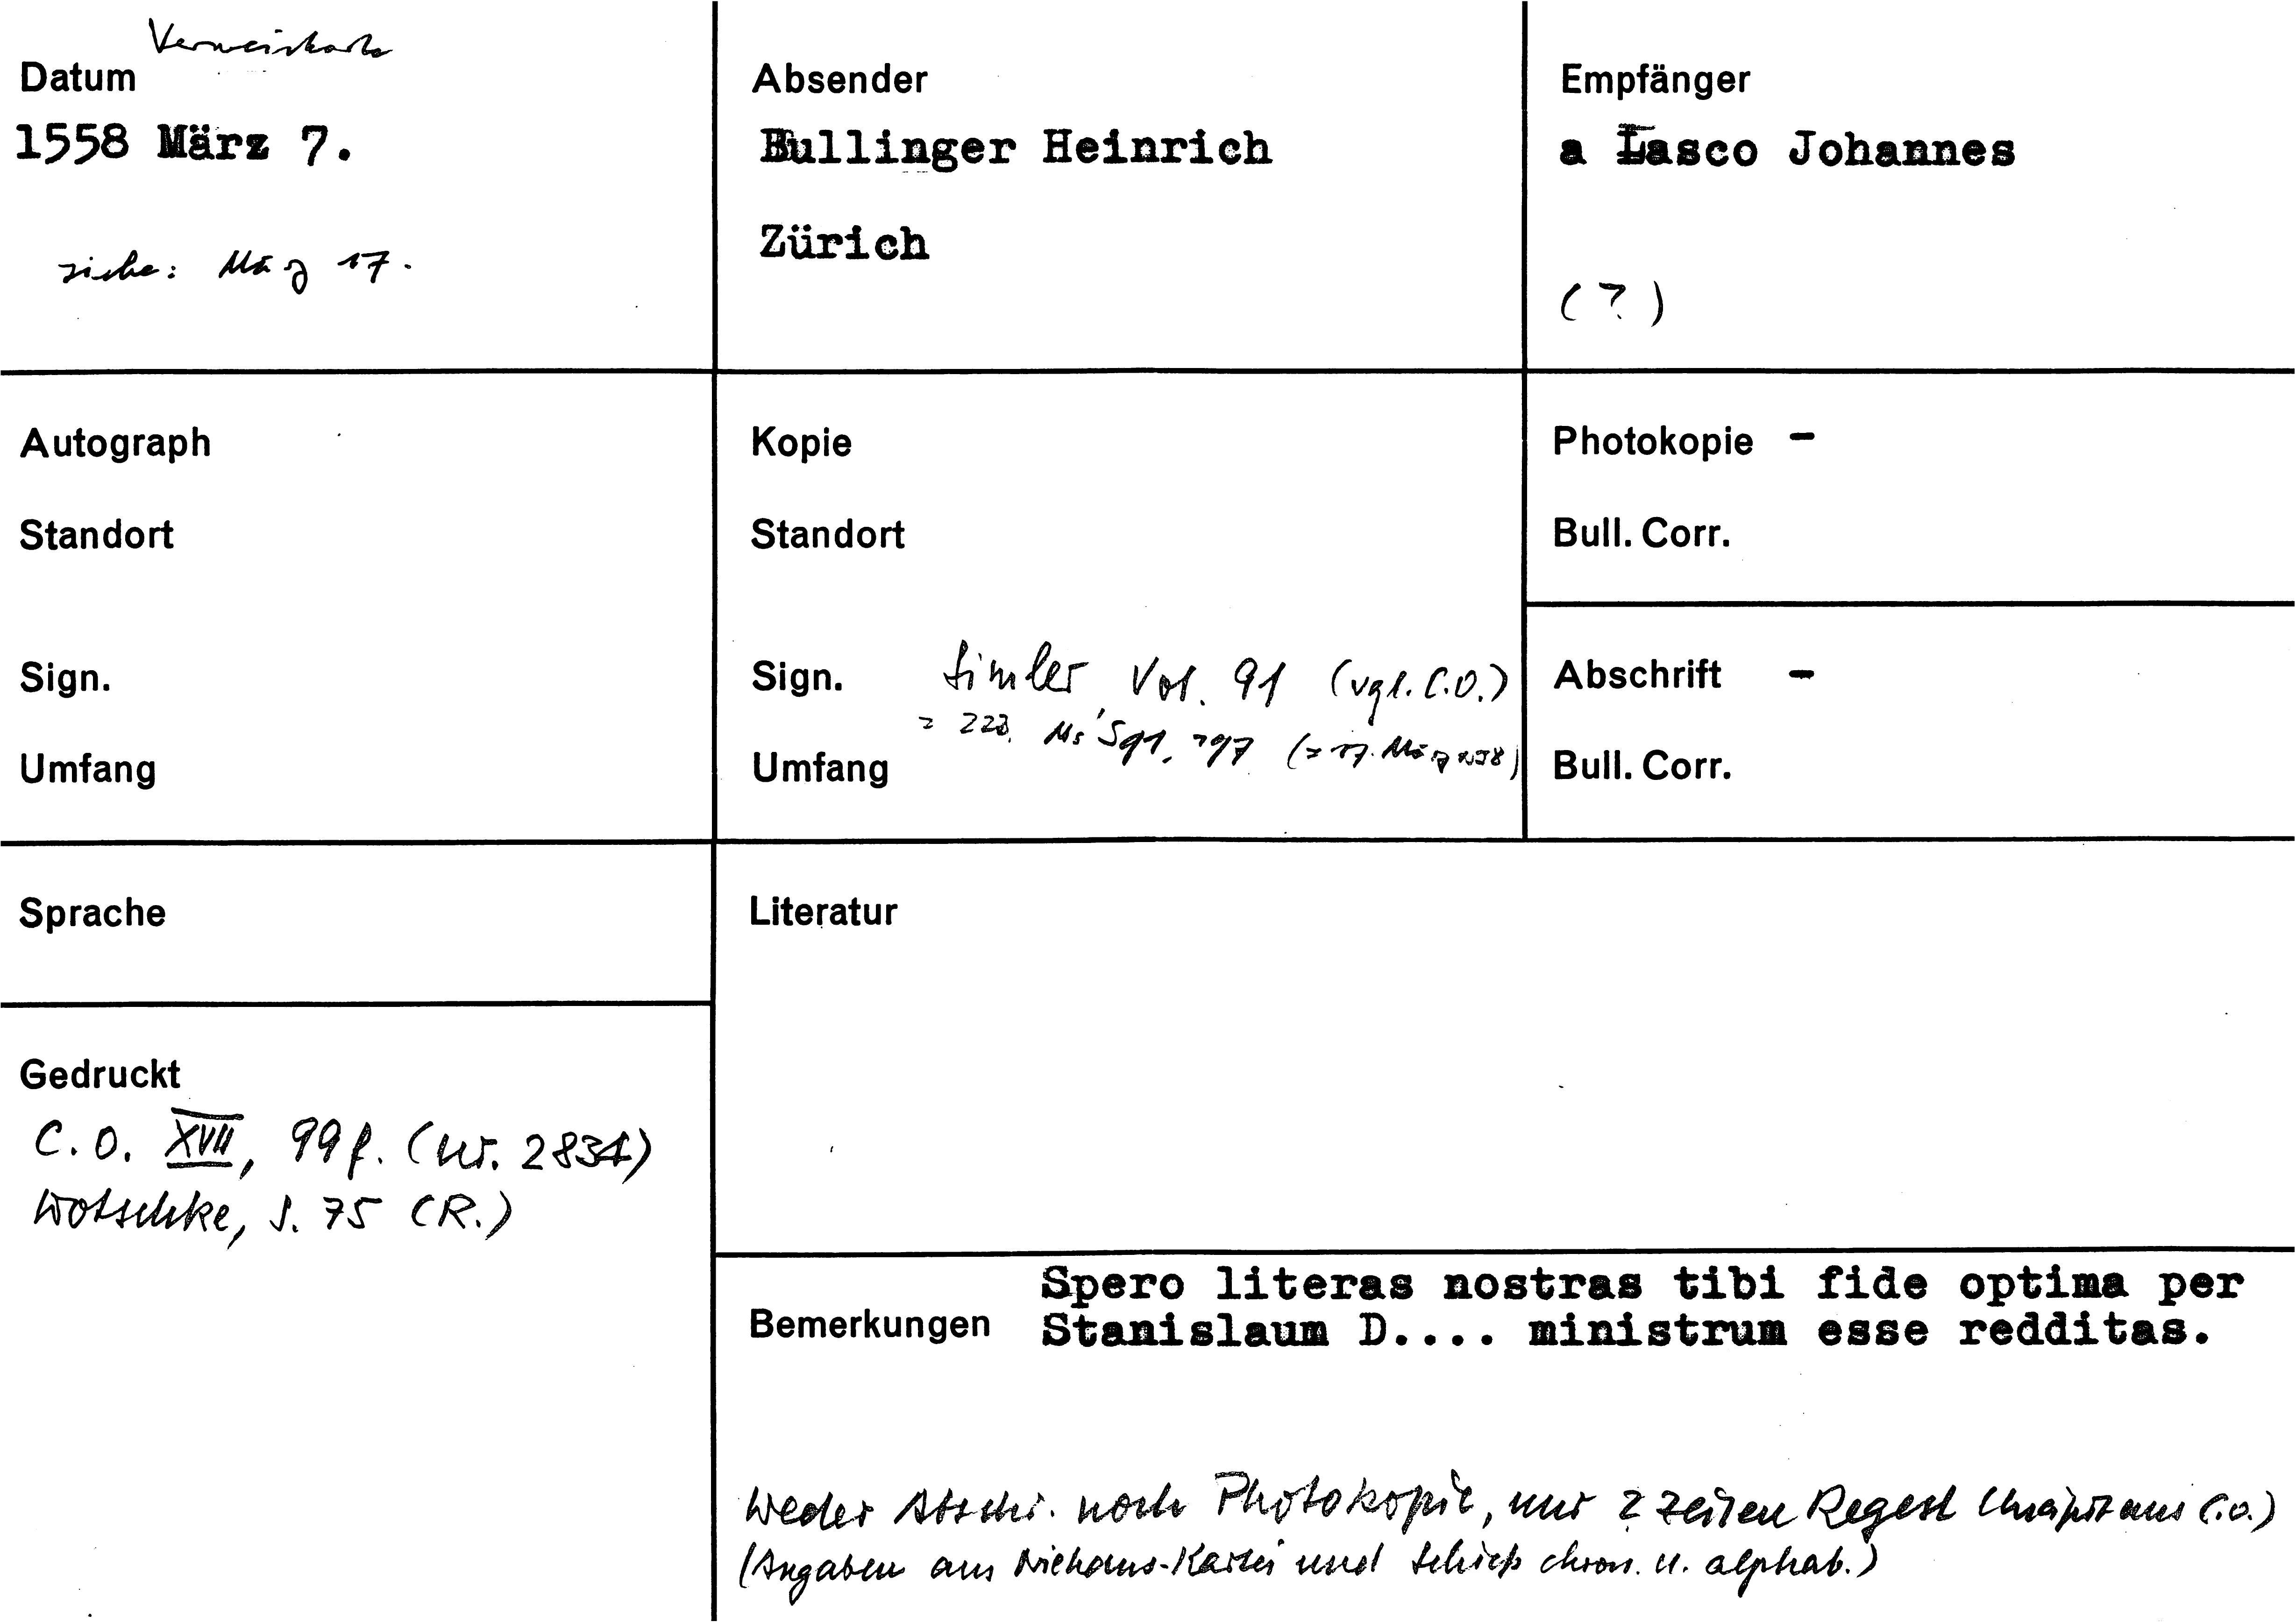 Verweiskarte
Datum
1558 März 7.
siehe: März 17.
Absender
Bullinger Heinrich
Zürich
Empfänger
a Lasco Johannes
(?)
Autograph
Standort
Sign.
Umfang
Kopie
Standort
Sign. Simler Vol. 91 (vgl. C.O.)
= ZZB, Ms S 91, 197 (= 17. März 1558)
Umfang
Photokopie -
Bull. Corr.
Abschrift -
Bull. Corr.
Sprache
Literatur
Gedruckt
C.O. XVII, 99 f. (Nr. 2834)
Wotschke, S. 75 (R.)
Bemerkungen
Spero literas nostras tibi fide optima per
Stanislaum D.... ministrum esse redditas.
Weder Abschr. noch Photokopie, nur 2 Zeilen Regest aus C.O.)
(Angaben aus Niehans-Kartei und Schieß chron. u. alphab.)